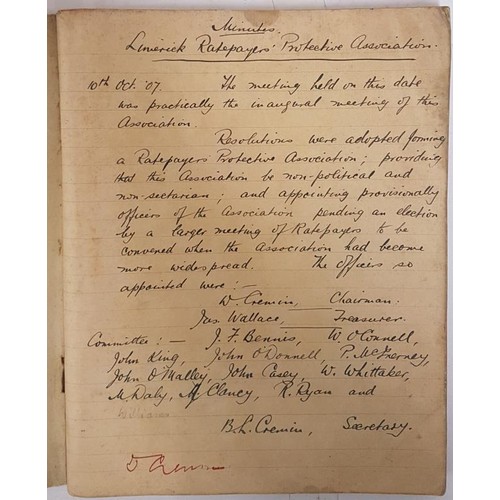 Minutes.
Limerick Ratepayers' Protective Association.
10th Oct. '07. The meeting held on this date
was practically the inaugural meeting of this
Association.
Resolutions were adopted forming
a Ratepayers' Protective Association; providing
that this Association be non-political and
non-sectarian; and appointing provisionally
officers of the Association pending an election
by a larger meeting of Ratepayers to be
convened when the Association had become
more widespread. The Officers so
appointed were :-
W. Cremin, Chairman.
Jas. Wallace, Treasurer.
Committee :- J. F. Bennis, W. O'Connell,
John King, John O'Donnell, P. McInerney,
John O'Malley, John Casey, W. Whittaker,
M. Daly, M. Clancy, R. Ryan and
B. L. Cremin, Secretary.
Cremin